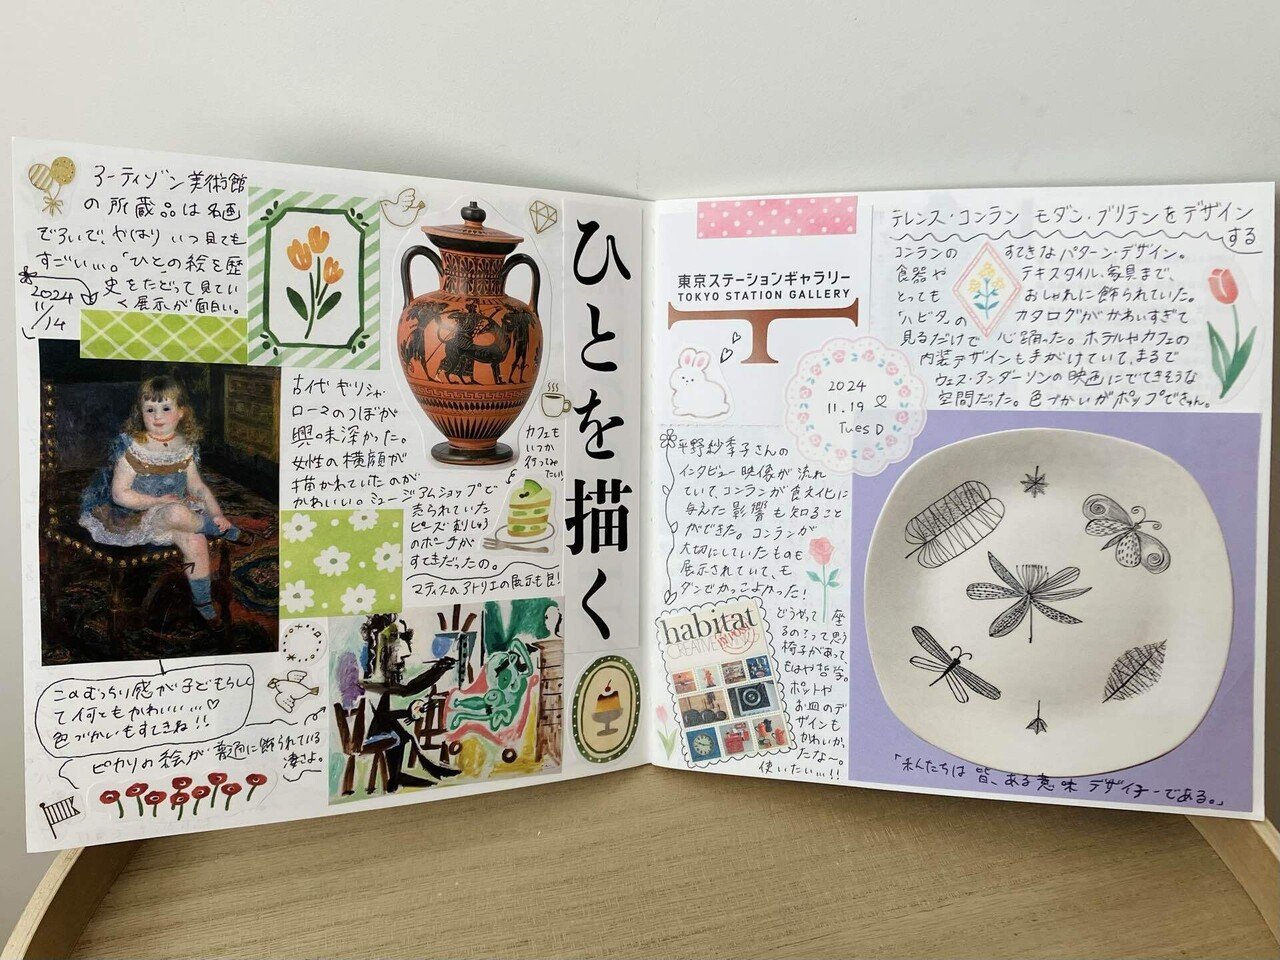 アーティゾン美術館
の所蔵品は名画
ぞろいで、やはりいつ見ても
すごい…。「ひと」の絵を歴
史をたどって見てい
く展示が面白い。
2024
11/14
古代ギリシャ・
ローマのつぼが
興味深かった。
女性の横顔が
描かれていたのが
かわいい。ミュージアムショップで
売られていた
ビーズ刺しゅう
のポーチが
すてきだったの。
マティスのアトリエの展示も良!
カフェも
いつか
行ってみ
たい!
ひとを描く
このむっちり感が子どもらしく
て何ともかわいい…♡
色づかいもすてきね!!
ピカソの絵が普通に飾られている
凄さよ。
東京ステーションギャラリー
TOKYO STATION GALLERY
2024
11.19 ♡
Tues D
テレンス・コンラン モダン・ブリテンをデザイン
する
コンランの すてきなパターン・デザイン。
食器や テキスタイル、家具まで、
とっても おしゃれに飾られていた。
「ハビタ」の カタログがかわいすぎて
見るだけで 心踊った。ホテルやカフェの
内装デザインも手がけていて、まるで
ウェス・アンダーソンの映画にでてきそうな
空間だった。色づかいがポップできゅん。
平野紗季子さんの
インタビュー映像が流れ
ていて、コンランが食文化に
与えた影響も知ること
ができた。コンランが
大切にしていたものも
展示されていて、モ
ダンでかっこよかった!
どうやって座
るの?って思う
椅子があって、
もはや哲学。
ポットや
お皿のデ
ザインも
かわいか
たな〜。
使いたい…!!
habitat
CREATIVE
BY POST
「私たちは皆、ある意味デザイナーである。」